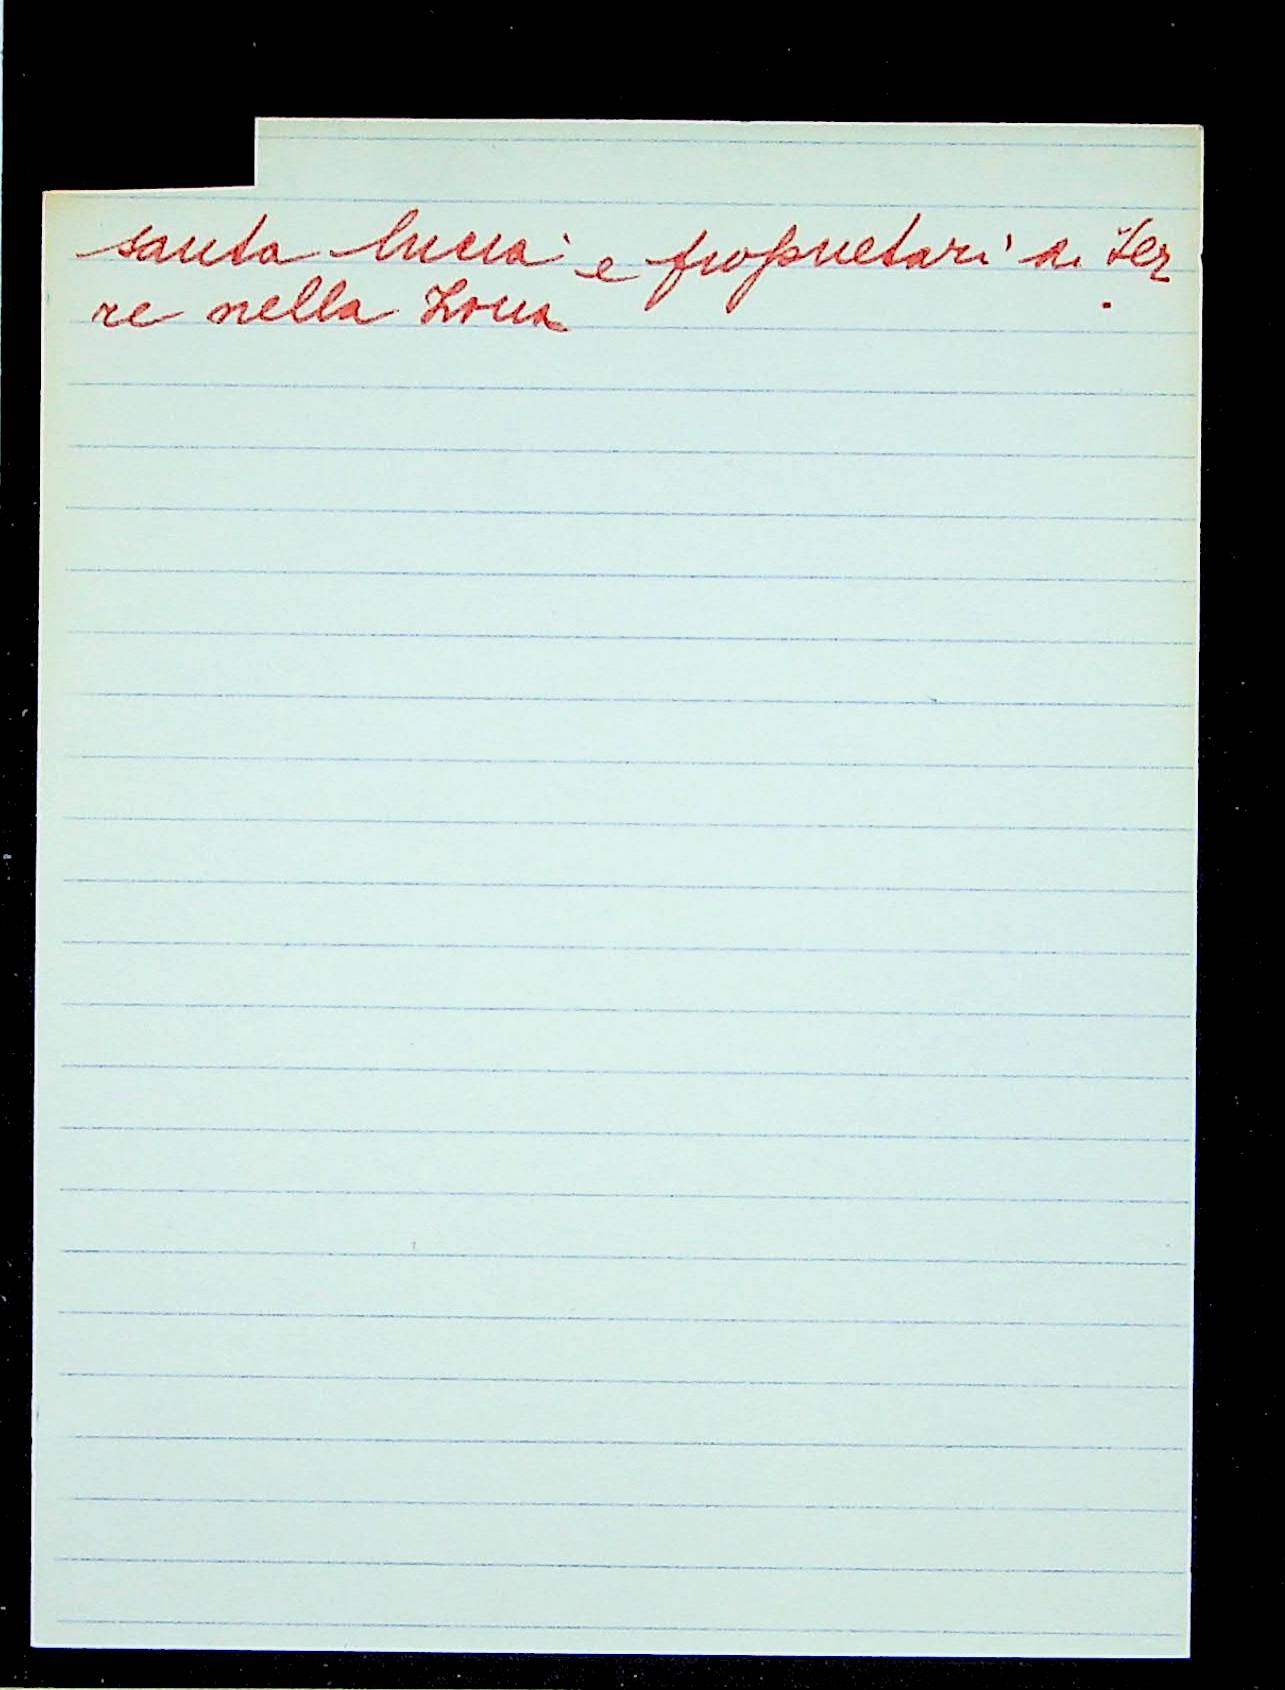 santa lucia e proprietari di ter
re nella zona